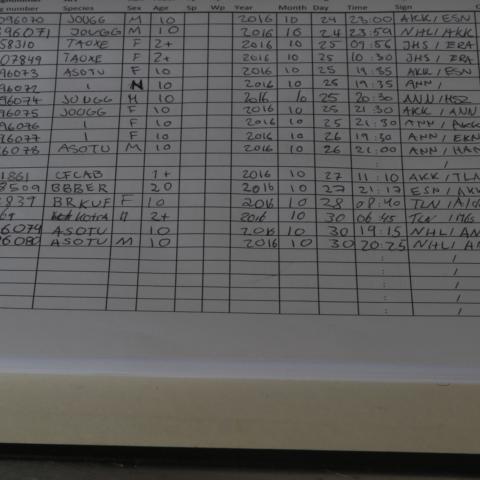 g number Species Sex Age Sp Wp Year Month Day Time Sign
096070 JOUGG M 10 2016 10 24 23:00 AKK/ESN
096071 JOUGG M 10 2016 10 24 23:59 NHL/AKK
58310 TAOXE F 2+ 2016 10 25 09:56 JHS/ERA
07849 TAOXE F 2+ 2016 10 25 10:30 JHS/ERA
96073 ASOTU F 10 2016 10 25 19:35 AKK/ESN
96072 N 10 2016 10 25 19:35 ANN/
96074 JOUGG M 10 2016 10 25 20:30 ANN/HSZ
96075 JOUGG F 10 2016 10 25 21:30 AKK/ANN
96076 F 10 2016 10 25 21:30 ANN/AKK
96077 F 10 2016 10 26 19:30 ANN/EKN
6078 ASOTU M 10 2016 10 26 21:00 ANN/HAN
: /
1861 CFCAB 1+ 2016 10 27 11:10 AKK/TLN
8509 BBBER 20 2016 10 27 21:17 ESN/AKK
2837 BRKUF F 10 2016 10 28 08:40 TLN
69 2+ 2016 10 30 06:45 TLN
6079 ASOTU 10 2016 10 30 19:15 NHL/AN
6080 ASOTU M 10 2016 10 30 20:25 NHL/A
: /
: /
: /
: /